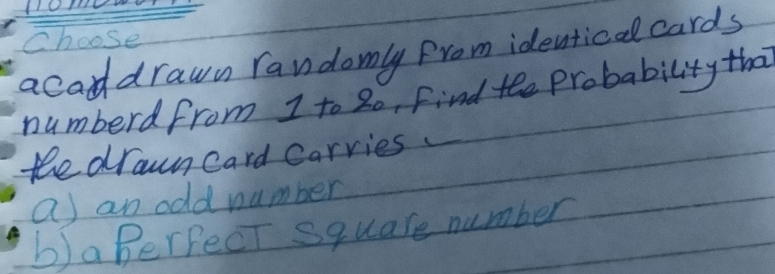 Choose
a card drawn randomly from identical cards
numberd from 1 to 20, Find the Probability that
the drawn card carries
a) an odd number
b) a Perfect square number